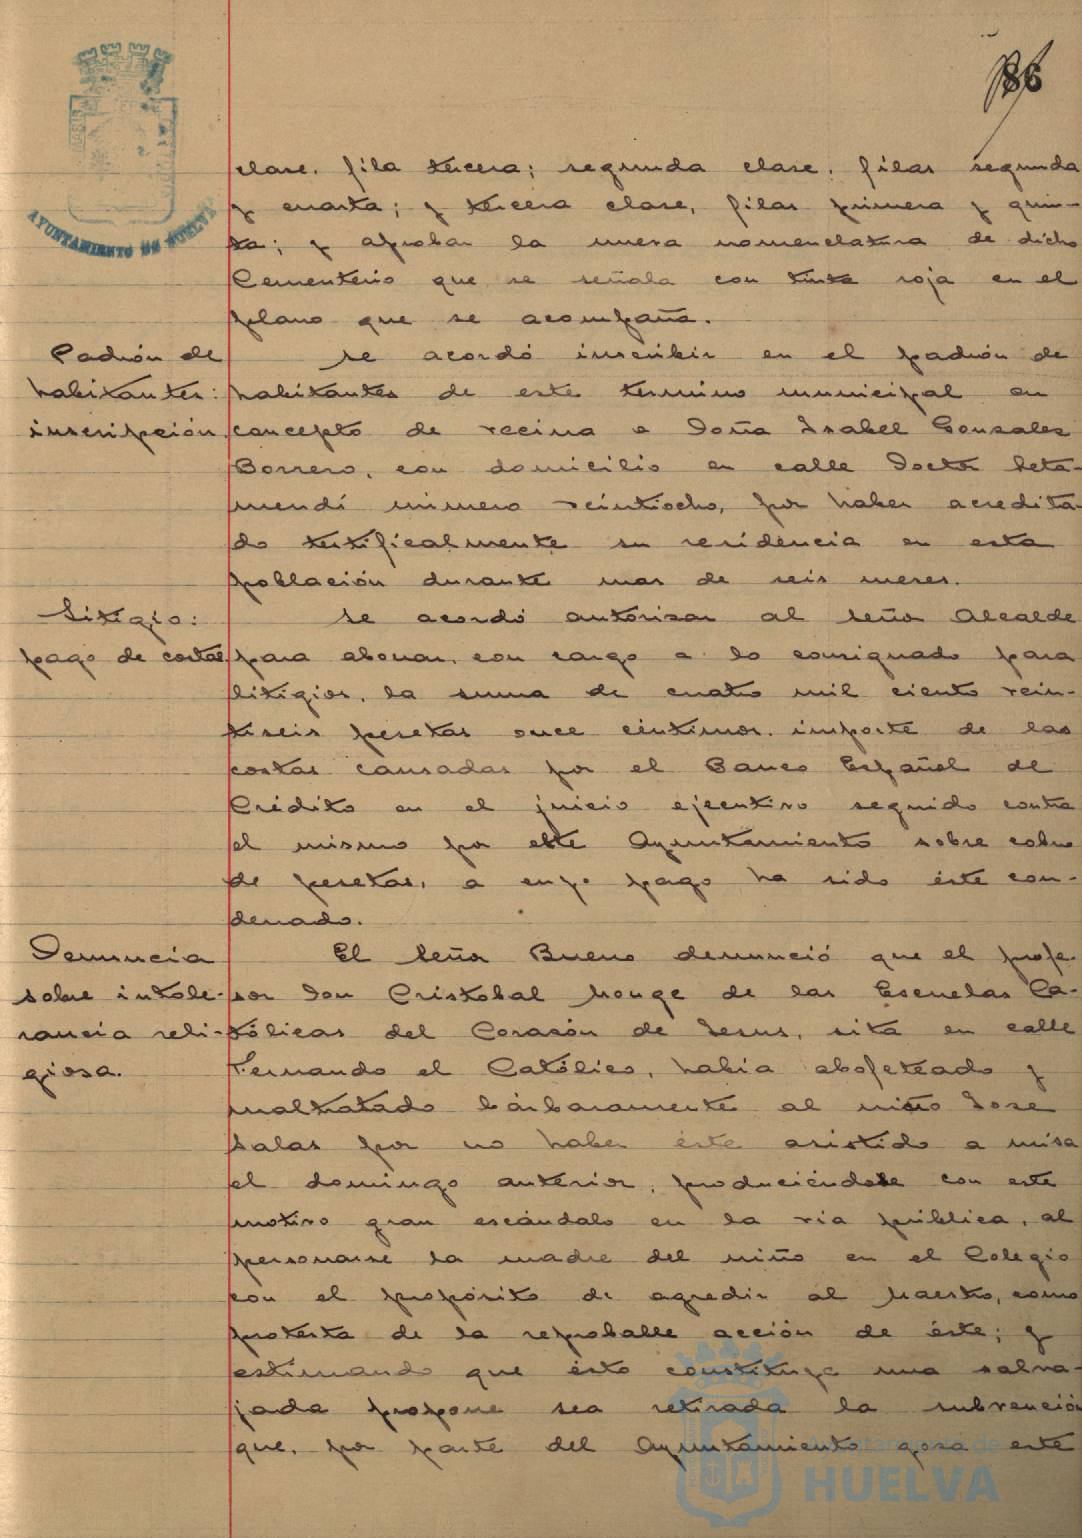 86
AYUNTAMIENTO DE HUELVA
clase, fila tercera; segunda clase, filas segunda
y cuarta; y tercera clase, filas primera y quin-
ta; y aprobar la nueva nomenclatura de dicho
Cementerio que se señala con tinta roja en el
plano que se acompaña.
Padrón de
habitantes:
inscripción.
Se acordó inscribir en el padrón de
habitantes de este termino municipal en
concepto de vecina a Doña Isabel Gonzales
Borrero, con domicilio en calle Doctor Leta-
mendi número veintiocho, por haber acredita-
do testificalmente su residencia en esta
población durante mas de seis meses.
Litigio:
pago de costas
Se acordó autorizar al Señor Alcalde
para abonar, con cargo a lo consignado para
litigios, la suma de cuatro mil ciento vein-
tiseis pesetas once céntimos, importe de las
costas causadas por el Banco Español de
Crédito en el juicio ejecutivo seguido contra
el mismo por este Ayuntamiento sobre cobro
de pesetas, a cuyo pago ha sido éste con-
denado.
Denuncia
sobre intole-
rancia reli-
giosa.
El Señor Bueno denunció que el profe-
sor Don Cristobal Monge de las Escuelas Ca-
tólicas del Corazón de Jesus, sita en calle
Fernando el Católico, habia abofeteado y
maltratado bárbaramente al niño José
Salas por no haber éste asistido a misa
el domingo anterior, produciéndose con este
motivo gran escándalo en la via pública, al
personarse la madre del niño en el Colegio
con el propósito de agredir al Maestro, como
protesta de la reprobable acción de éste; y
estimando que ésto constituye una salva-
jada propone sea retirada la subvención
que, por parte del Ayuntamiento goza este
Ayuntamiento de
HUELVA